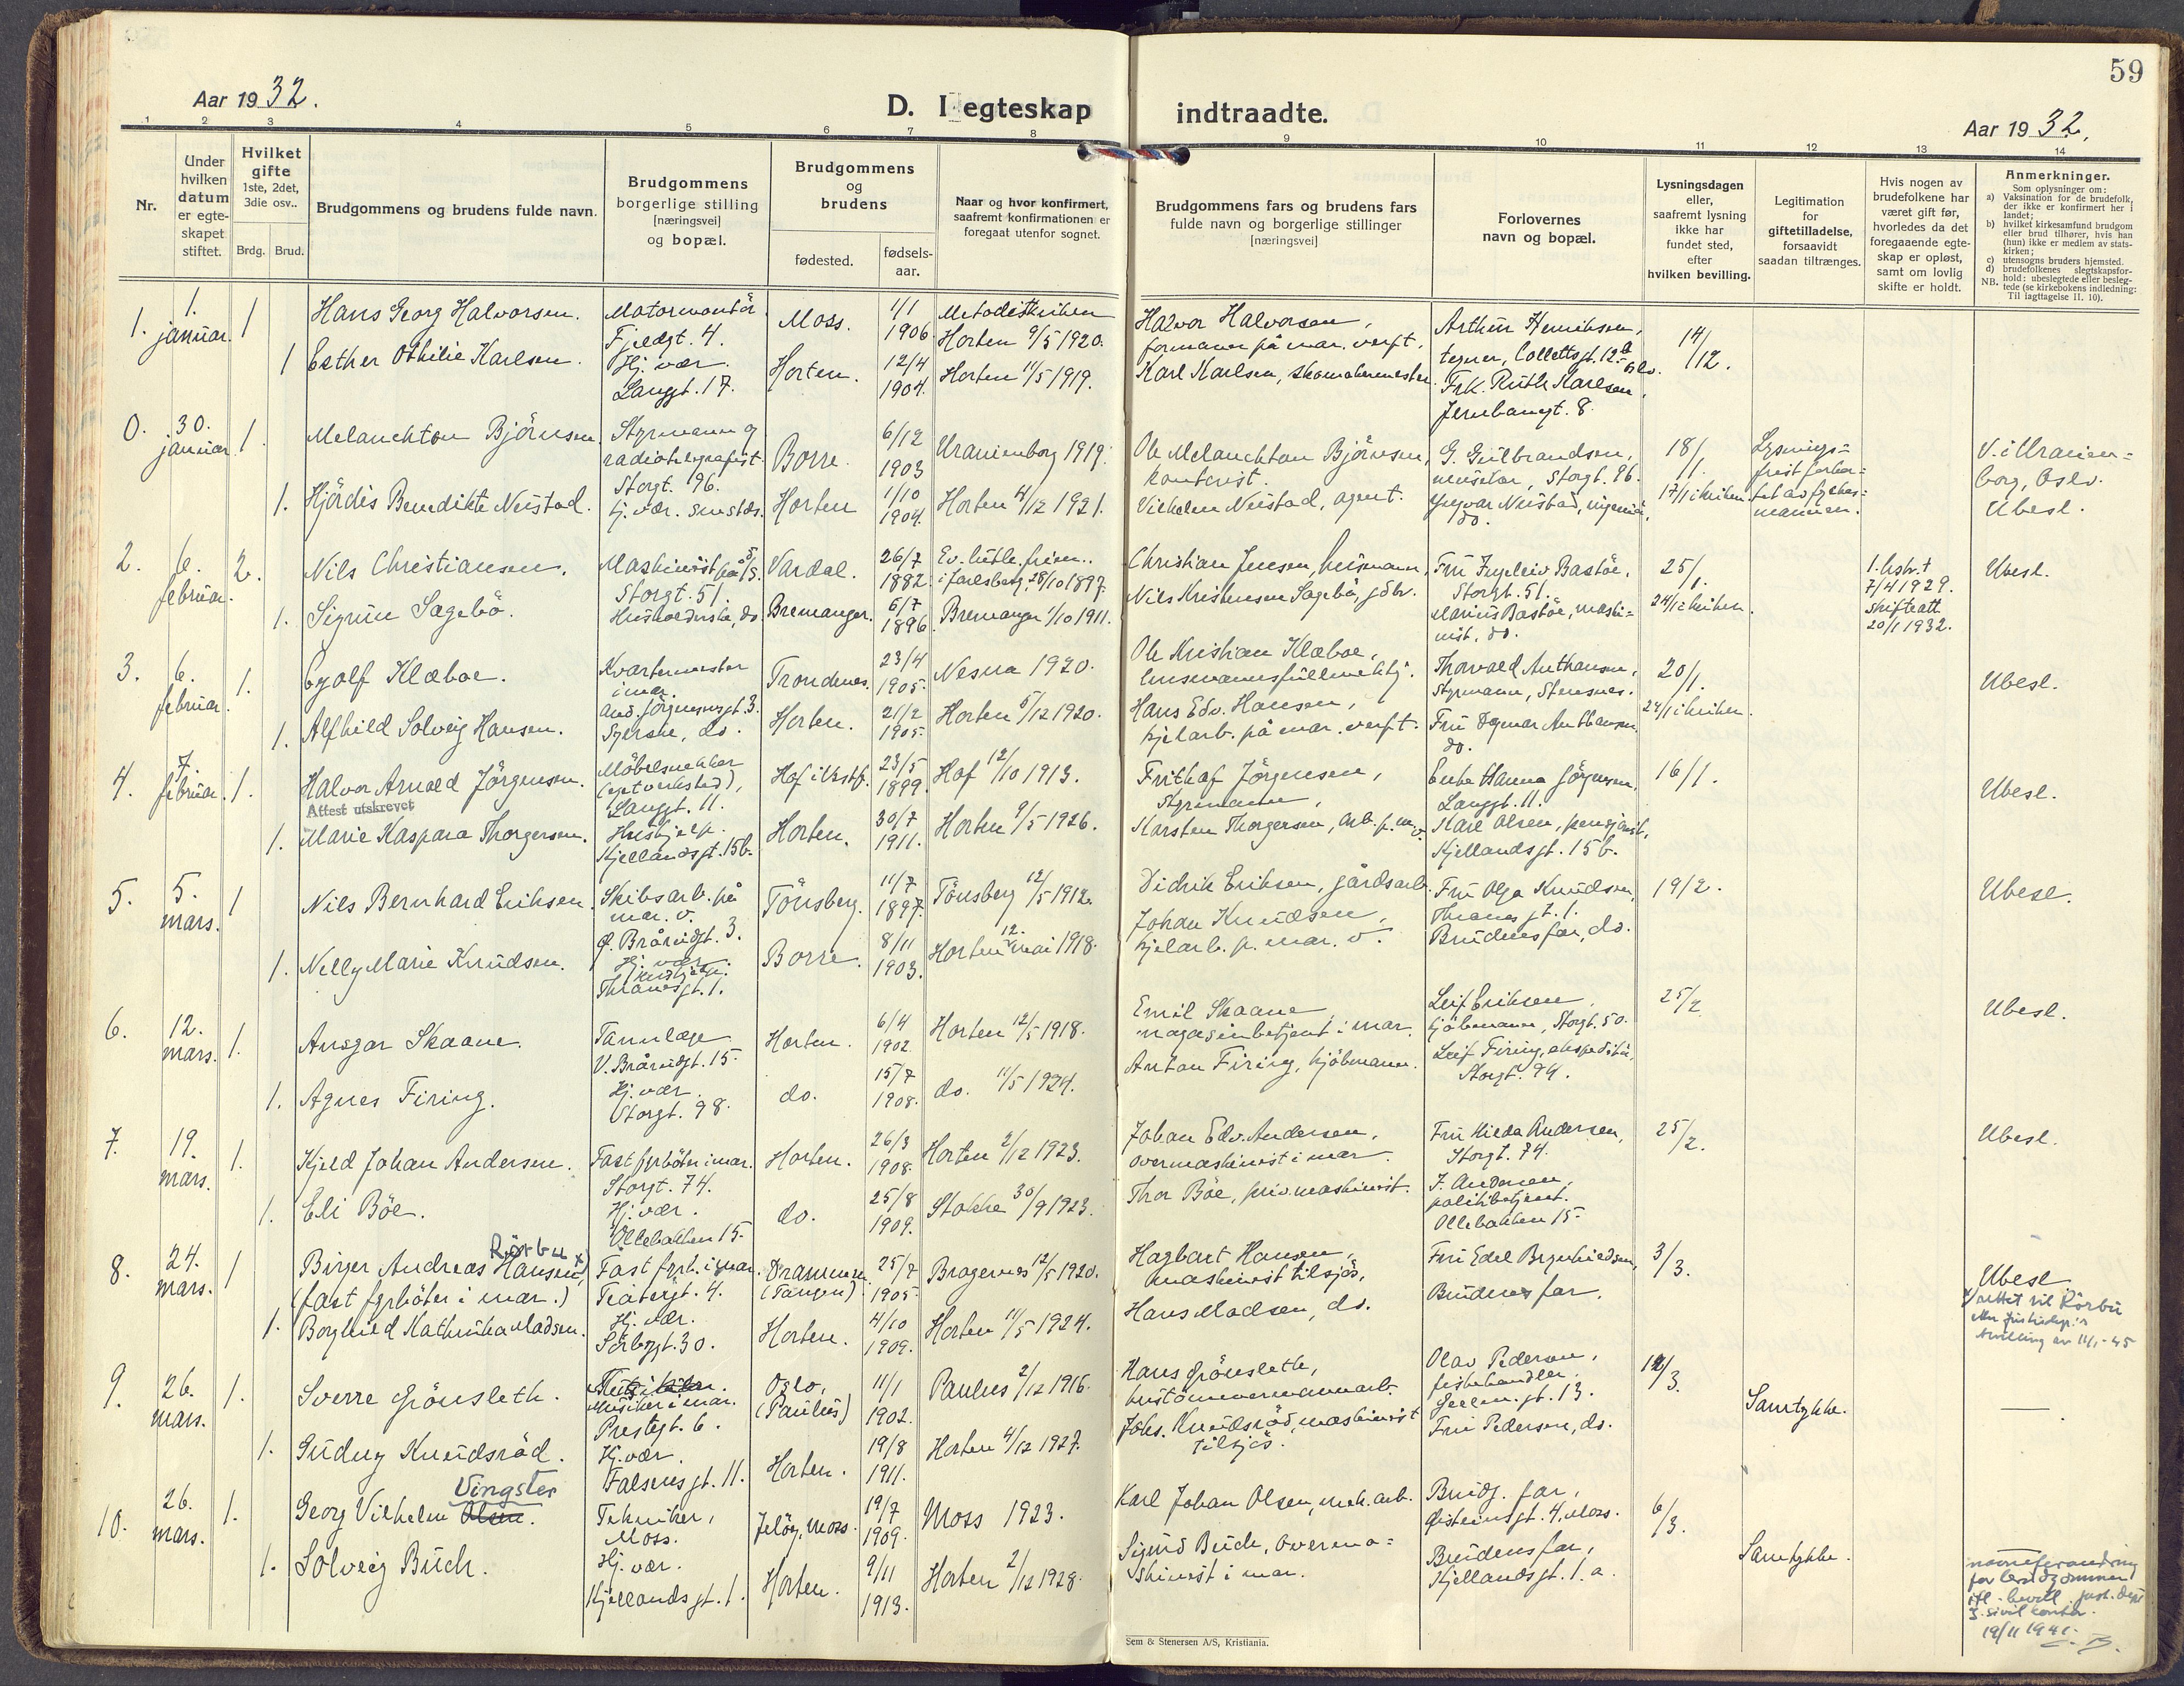 59
Aar 1932.
D. I egteskap indtraadte.
Aar 1932.
1 2 3 4 5 6 7 8 9 10 11 12 13 14
Nr.
Under hvilken datum er egte-skapet stiftet.
Hvilket gifte 1ste, 2det, 3die osv..
Brdg. Brud.
Brudgommens og brudens fulde navn.
Brudgommens borgerlige stilling [næringsvei] og bopæl.
Brudgommens og brudens
fødested.
fødsels-aar.
Naar og hvor konfirmert, saafremt konfirmationen er foregaat utenfor sognet.
Brudgommens fars og brudens fars fulde navn og borgerlige stillinger [næringsvei]
Forlovernes navn og bopæl.
Lysningsdagen eller, saafremt lysning ikke har fundet sted, efter hvilken bevilling.
Legitimation for giftetilladelse, forsaavidt saadan tiltrænges.
Hvis nogen av brudefolkene har været gift før, hvorledes da det foregaaende egte-skap er opløst, samt om lovlig skifte er holdt.
Anmerkninger.
Som oplysninger om:
a) Vaksination for de brudefolk, der ikke er konfirmert her i landet;
b) hvilket kirkesamfund brudgom eller brud tilhører, hvis han (hun) ikke er medlem av stats-kirken;
c) utensogns bruders hjemsted.
d) brudefolkenes slegtskapsfor-hold: ubeslegtede eller besleg-tede (se kirkebokens indledning: NB. Til iagttagelse II. 10).
1. 1. januar. 1 Hans Georg Halvorsen. Motormontör Fjeldgt. 4. Moss. 1/1 1906 Metodistkirken Horten 9/5 1920. Halvor Halvorsen, formann på mar. verft. Arthur Henriksen, tegner, Collettsgt. 12 Oslo. 14/12.
1 Esther Othilie Karlsen. Hj. vær. Langgt. 17. Horten. 12/4 1904. Horten 11/5 1919. Karl Karlsen, skomakermester. Frk. Ruth Karlsen, Jernbanegt. 8.
0. 30. januar 1. Melanchton Björnsen. Styrmann og radiotelegrafist. Storgt. 96. Borre. 6/12 1903 Uranienborg 1919. Ole Melanchton Björnsen, kontorist. G. Gulbrandsen, musiker, Storgt. 96. 18/1. Lysnings-frist forkor-tet av fylkes-mannen. V. i Uranien-borg, Oslo. Ubesl.
1. Hjördis Benedikte Neustad. hj. vær. smstds. Horten 1/10 1904. Horten 4/12 1921. Vilhelm Neustad, agent. Yngvar Neustad, ingeniör, do. 17/1 i kirken
2. 6. februar. 2. Nils Christiansen. Maskinist på S/S. Storgt. 51. Vardal. 26/7 1882. Ev. luth. frim.. i Jarlsberg, 28/10 1897. Christian Jensen, husmann. Fru Ingeleiv Bastöe, Storgt. 51. 25/1. 1. hstr. † 7/4 1929. skifteatt. 20/1 1932. Ubesl.
1. Sigrun Sagebö. Husholderske, do. Bremanger. 5/7 1896. Bremanger 1/10 1911. Nils Kristensen Sagebö, gdbr. Marius Bastöe, maski-nist, do. 24/1 i kirken.
3. 6. februar 1. Eyolf Klæboe. Kvartermester i mar. And. Jörgensensgt. 3. Trondenes. 23/4 1905. Nesna 1920. Ole Kristian Klæboe, lensmannsfullmektig. Thorvald Anthonsen, styrmann, Stensnes. 20/1. Ubesl.
1. Alfhild Solveig Hansen. Syerske, do. Horten. 21/2 1905. Horten 5/12 1920. Hans Edv. Hansen, kjelarb. på mar. verft. Fru Dagmar Anthonsen do. 24/1 i kirken.
4. 7. februar. 1. Halvor Arnold Jörgensen. Möbelsnekker (eget verksted), Langgt. 11. Hof i Vestf. 23/5 1899. Hof 12/10 1913. Frithof Jörgensen, styrmann, Enke Hanna Jörgensen, Langgt. 11. 16/1. Ubesl.
Attest utskrevet
1. Marie Kaspara Thorgersen. Hushjelp. Kjellandsgt. 15b. Horten. 30/7 1911. Horten 9/5 1926. Karsten Thorgersen, arb. p. m. v. Karl Olsen, pensjonist, Kjellandsgt. 15 b.
5. 5. mars. 1 Nils Bernhard Eriksen. Skibsarb. på mar. v. Ø. Brårudgt. 3. Tönsberg. 11/7 1897. Tönsberg 12/5 1912. Didrik Eriksen, gårdsarb. Fru Olga Knudsen, Thranesgt. 1. 19/2. Ubesl.
1. Nelly Marie Knudsen. Hj. vær. hushjelp. Thranesgt. 1. Borre. 8/11 1903. Horten 12. mai 1918. Johan Knudsen, kjelarb. p. mar. v. Brudens far, do.
6. 12. mars. 1. Ansgar Skaane. Tannlæge V. Brårudgt. 15. Horten. 6/4 1902. Horten 12/5 1918. Emil Skaane, magasinbetjent i mar. Leif Eriksen, kjöbmann, Storgt. 50. 25/2 Ubesl.
1. Agnes Firing. Hj. vær. Storgt. 98. do. 15/7 1908. do. 11/5 1924. Anton Firing, kjöbmann. Leif Firing, ekspeditör. Storgt. 94.
7. 19. mars. 1. Kjeld Johan Andersen. Fast fyrböter i mar. Storgt. 74. Horten. 26/3 1908. Horten 2/12 1923. Johan Edv. Andersen, overmaskinist i mar. Fru Hilda Andersen, Storgt. 74. 25/2. Ubesl.
1. Eli Böe. Hj. vær. Ollebakken 15. do. 25/8 1909. Stokke 30/9 1923. Thor Böe, priv. maskinist. J. Andersen, politibetjent. Ollebakken 15.
8. 24. mars. 1 Birger Andreas Hansen Rörbu x) (fast fyrböter i mar.) Fast fyrb. i mar. Teatergt. 4. Drammen (Tangen). 25/7 1905. Bragernes 12/5 1920. Hagbart Hansen, maskinist tilsjös, Fru Edel Bryrhildsen, 3/3. Ubesl. x) rettet til Rörbu
1. Borghild Kathinka Madsen. Hj. vær. Sörbygt. 30. Horten. 4/10 1909. Horten 11/5 1924. Hans Madsen, do. Brudens far.
9. 26. mars. 1. Sverre Grönsleth. Musiker i mar. Prestegt. 6. Oslo, (Paulus) 11/1 1902. Paulus 2/12 1916. Hans Grönsleth, Olav Pedersen, fiskehandler, 13. 12/3. Samtykke. —
1. Gudny Knudsröd. Hj. vær. Falsensgt. 11. Horten. 19/8 1911. Horten 4/12 1927. Johs. Knudsröd, maskinist tilsjös. Fru Pedersen, do.
10. 26. mars. 1. Georg Vilhelm Olsen. Vingster Tekniker, Moss. Jelöy, Moss. 19/7 1909. Moss 1923. Karl Johan Olsen, mek. arb. Brudg. far, Østeinsgt. 4, Moss. 6/3. Samtykke.
1. Solveig Buch. Hj. vær. Kjellandsgt. 1. Horten. 9/11 1913. Horten 2/12 1928. Sigurd Buch, overma-skinist i mar. Brudens far, Kjellandsgt. 1. a. navneforandring for brudgommen ifl. bevill. just. dept 3. sivilkontor. 19/11 1941.
Sem & Stenersen A/S, Kristiania.